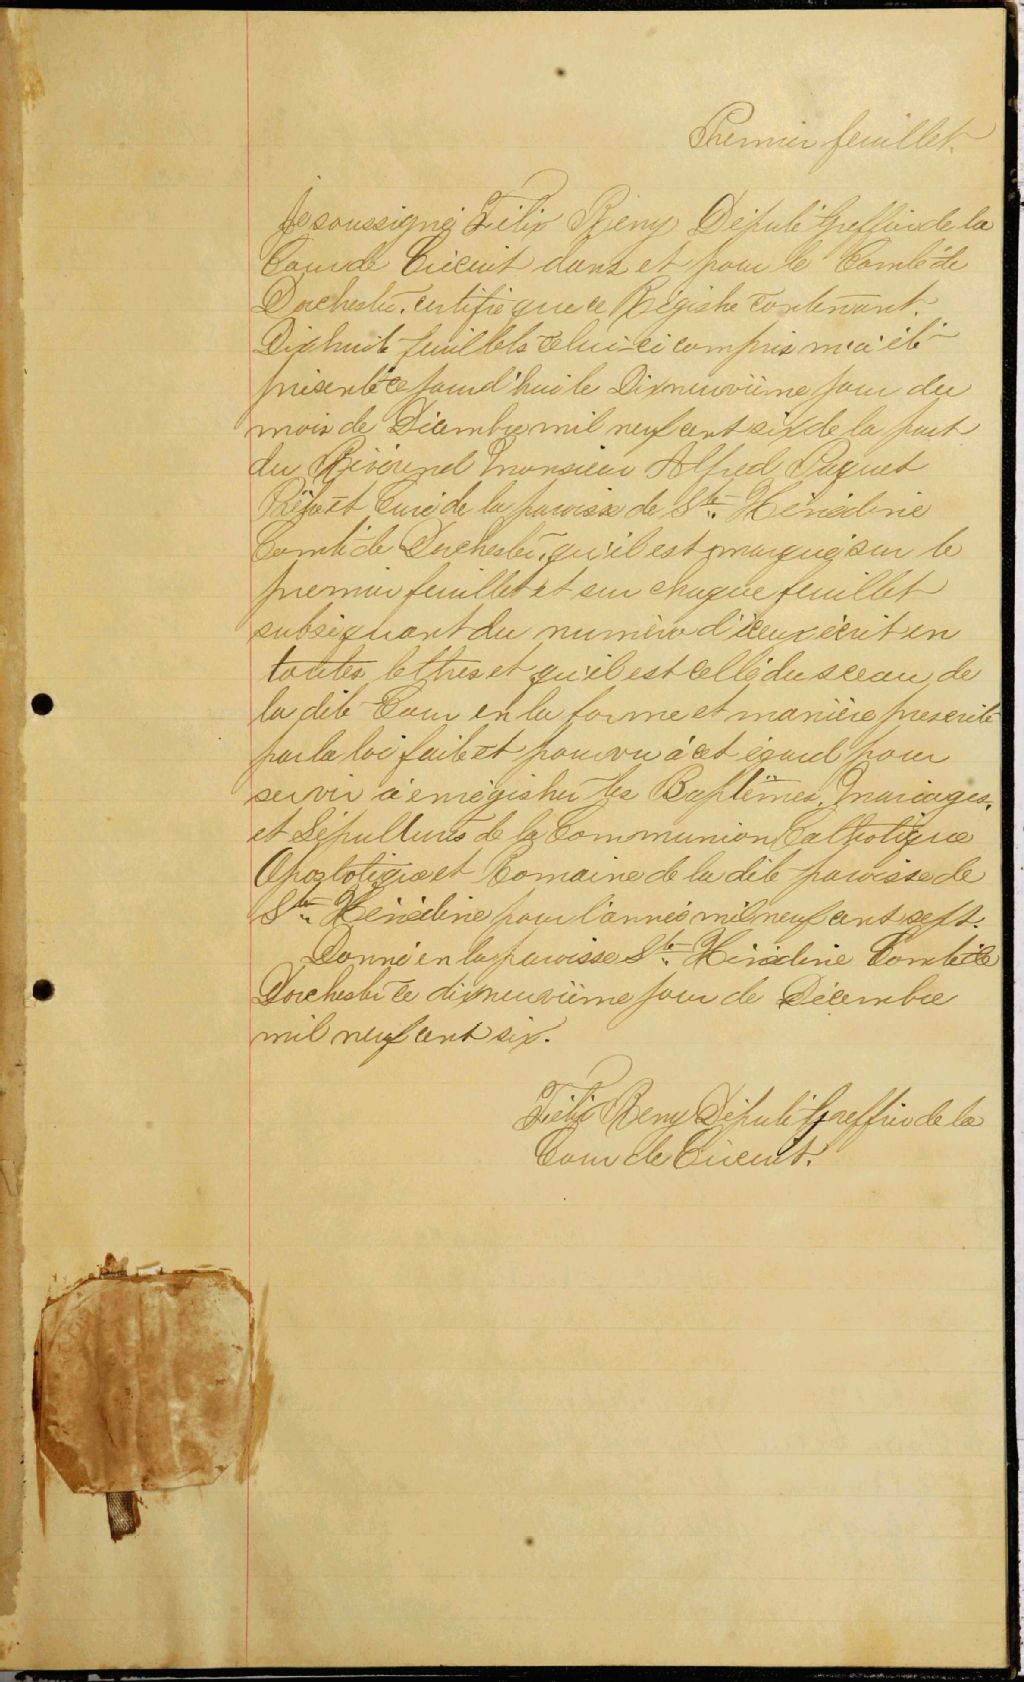 Premier feuillet.
Je soussigné Félix Rémy Député Greffier de la
Cour de Circuit dans et pour le Comté de
Dorchester, certifie que ce Régistre contenant
Dixhuit feuillets celui-ci compris m'a été
présenté ce jourd'hui le Dixneuvième jour du
mois de Décembre mil neuf cent six de la part
du Révérend Monsieur Alfred Paquet
Prêtre et Curé de la paroisse de Ste Hénédine
Comté de Dorchester, qu'il est marqué sur le
premier feuillet et sur chaque feuillet
subséquant du numéro d'iceux écrit en
toutes lettres et qu'il est cellé du sceau de
la dite Cour en la forme et manière prescrite
par la loi faite et pourvu à cet égard pour
servir à enrégistrer les Baptêmes, Mariages,
et Sépultures de la Communion Catholique
Apostolique et Romaine de la dite paroisse de
Ste Hénédine pour l'année mil neuf cent sept.
Donné en la paroisse Ste Hénédine Comté de
Dorchester ce dixneuvième jour de Décembre
mil neuf cent six.
Félix Rémy Député Greffier de la
Cour de Circuit.